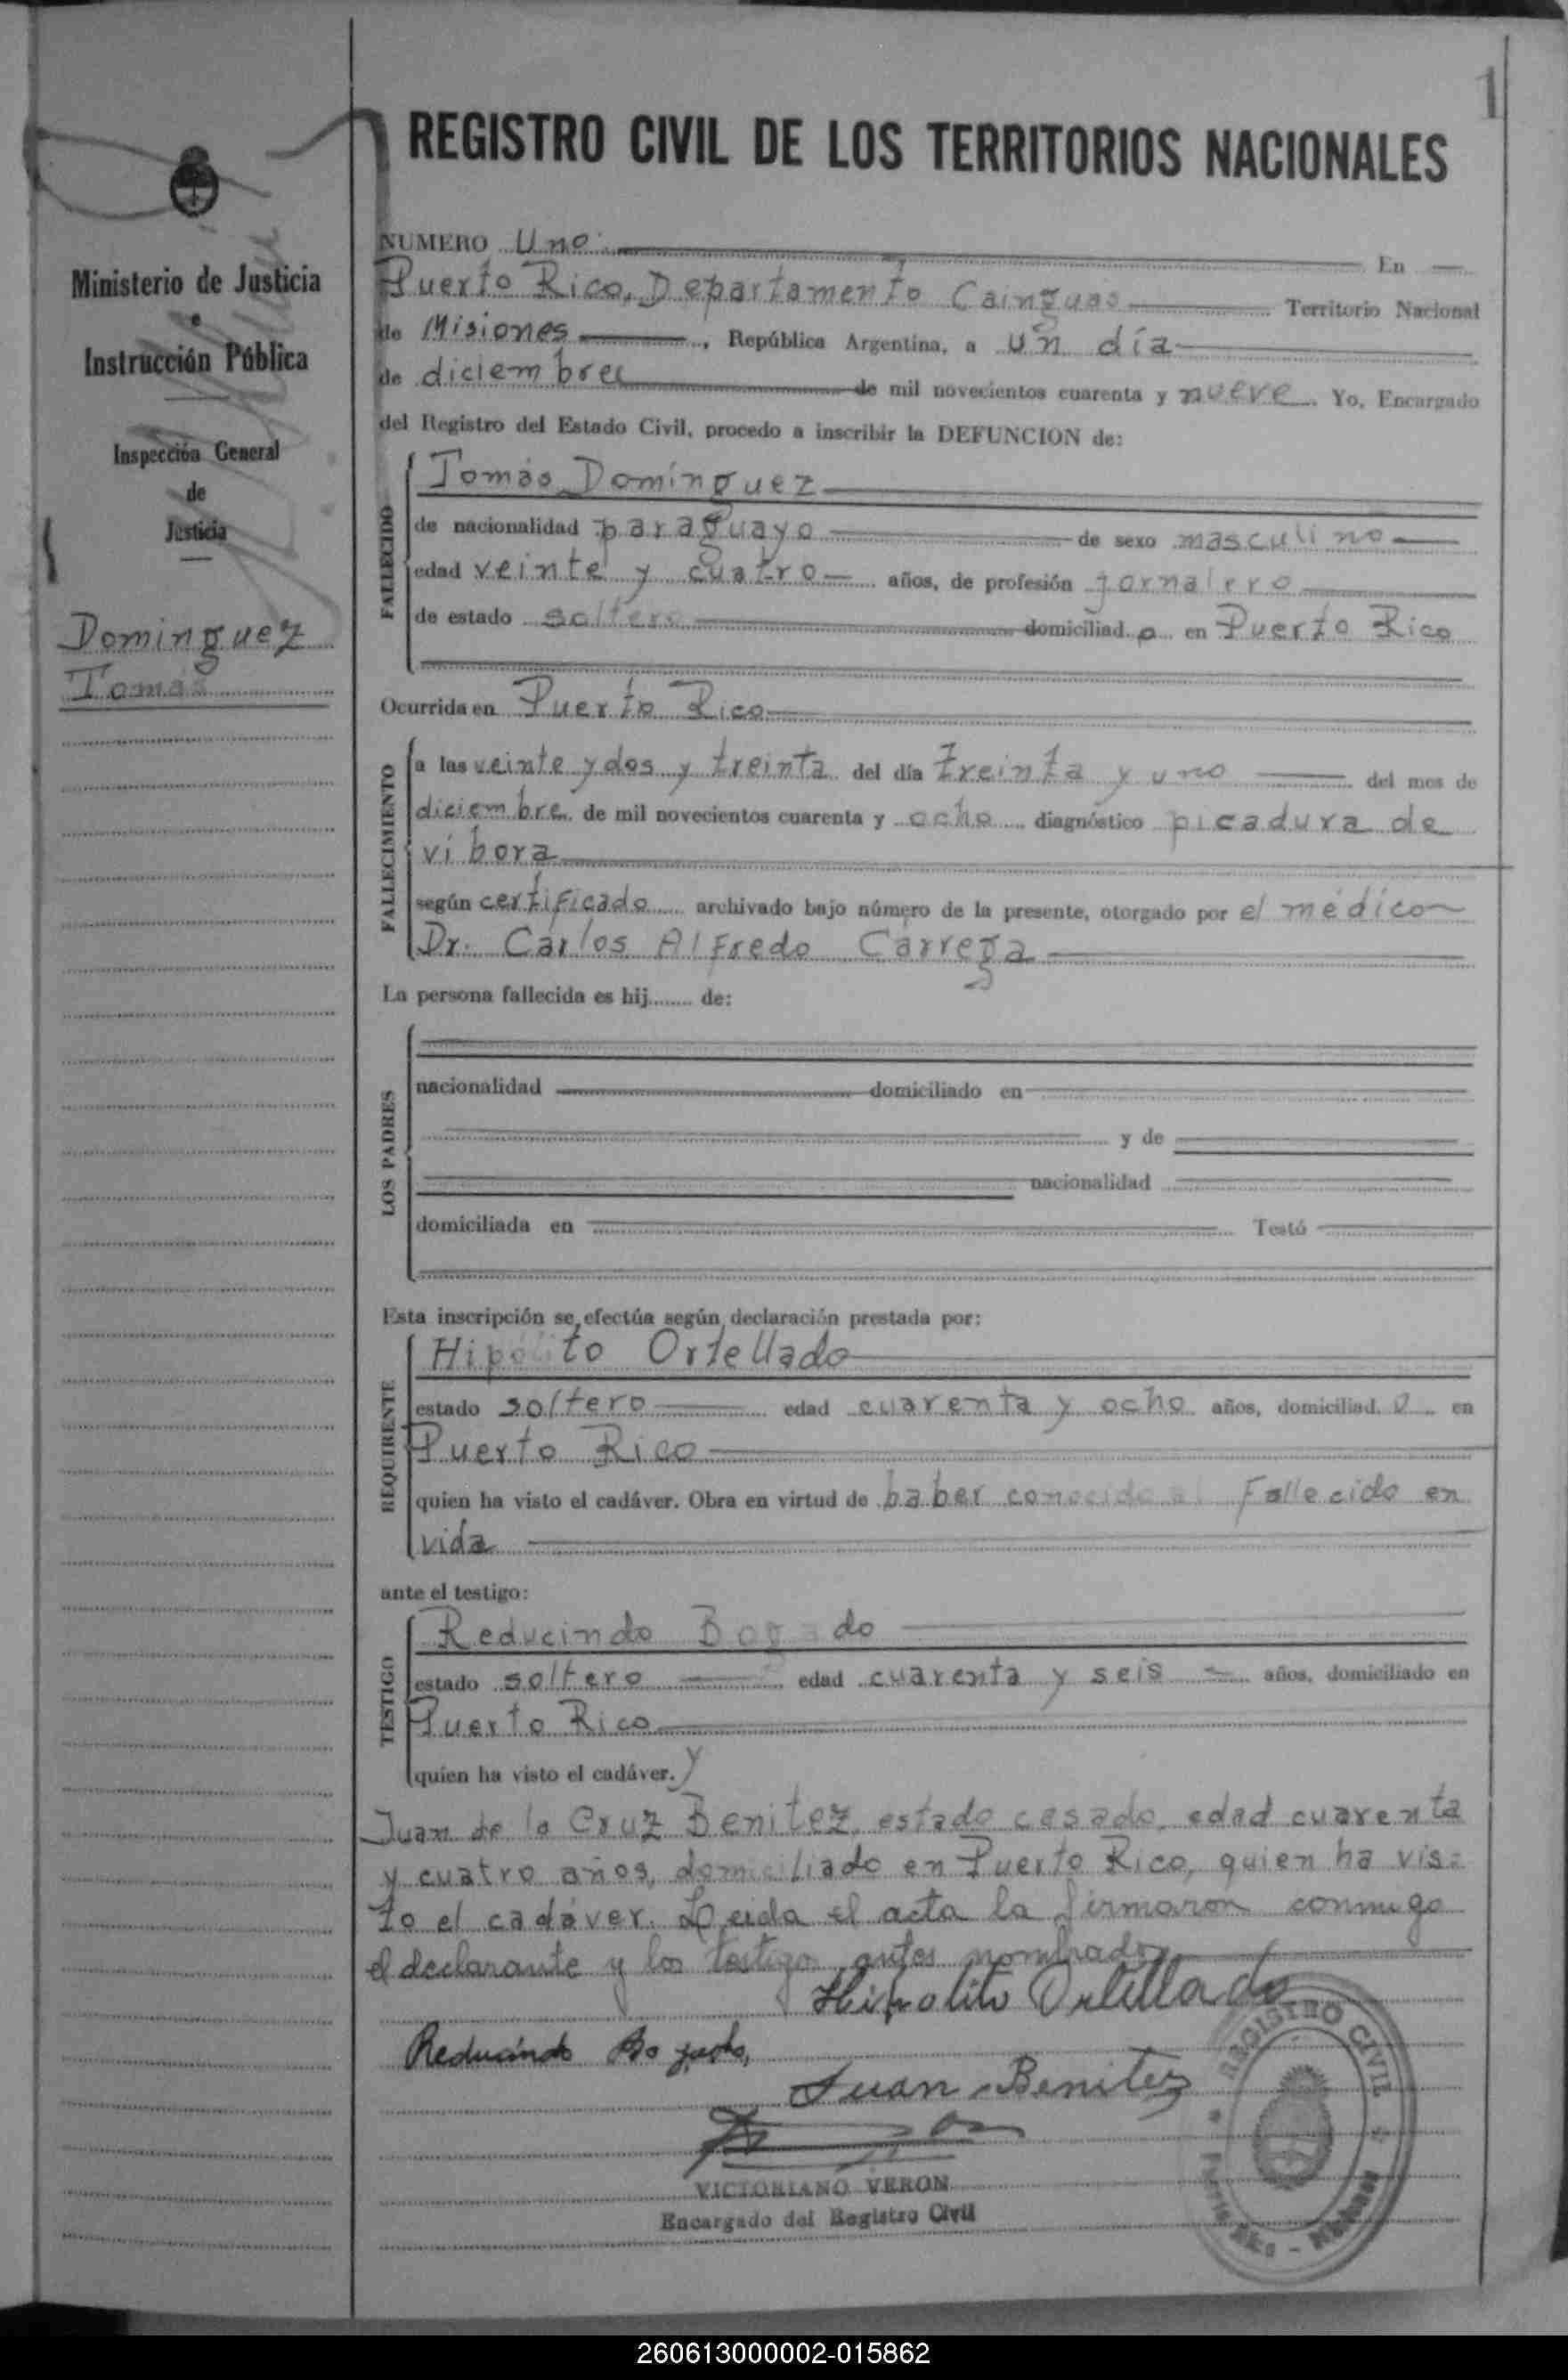 1
REGISTRO CIVIL DE LOS TERRITORIOS NACIONALES
Ministerio de Justicia
e
Instrucción Pública
Inspección General
de
Justicia
Dominguez
Tomás
NUMERO Uno. En
Puerto Rico, Departamento Cainguas Territorio Nacional
de Misiones, República Argentina, a un día
de diciembre de mil novecientos cuarenta y nueve. Yo, Encargado
del Registro del Estado Civil, procedo a inscribir la DEFUNCION de:
FALLECIDO
Tomás Domínguez
de nacionalidad paraguayo de sexo masculino
edad veinte y cuatro años, de profesión jornalero
de estado soltero domiciliad o en Puerto Rico
Ocurrida en Puerto Rico
FALLECIMIENTO
a las veinte y dos y treinta del día treinta y uno del mes de
diciembre de mil novecientos cuarenta y ocho diagnóstico picadura de
víbora
según certificado archivado bajo número de la presente, otorgado por el médico
Dr. Carlos Alfredo Carrega
La persona fallecida es hij........ de:
LOS PADRES
nacionalidad domiciliado en
y de
nacionalidad
domiciliada en Testó
Esta inscripción se efectúa según declaración prestada por:
REQUIRENTE
Hipólito Ortellado
estado soltero edad cuarenta y ocho años, domiciliad o en
Puerto Rico
quien ha visto el cadáver. Obra en virtud de haber conocido al Fallecido en
vida
ante el testigo:
TESTIGO
Reducindo Bogado
estado soltero edad cuarenta y seis años, domiciliado en
Puerto Rico
quien ha visto el cadáver. y
Juan de la Cruz Benitez, estado casado, edad cuarenta
y cuatro años, domiciliado en Puerto Rico, quien ha vis=
to el cadáver. Leida el acta la firmaron conmigo
el declarante y los testigos antes nombrados
Hipolito Ortellado
Reducindo Bogado,
Juan Benitez
VICTORIANO VERON
Encargado del Registro Civil
REGISTRO CIVIL
260613000002-015862